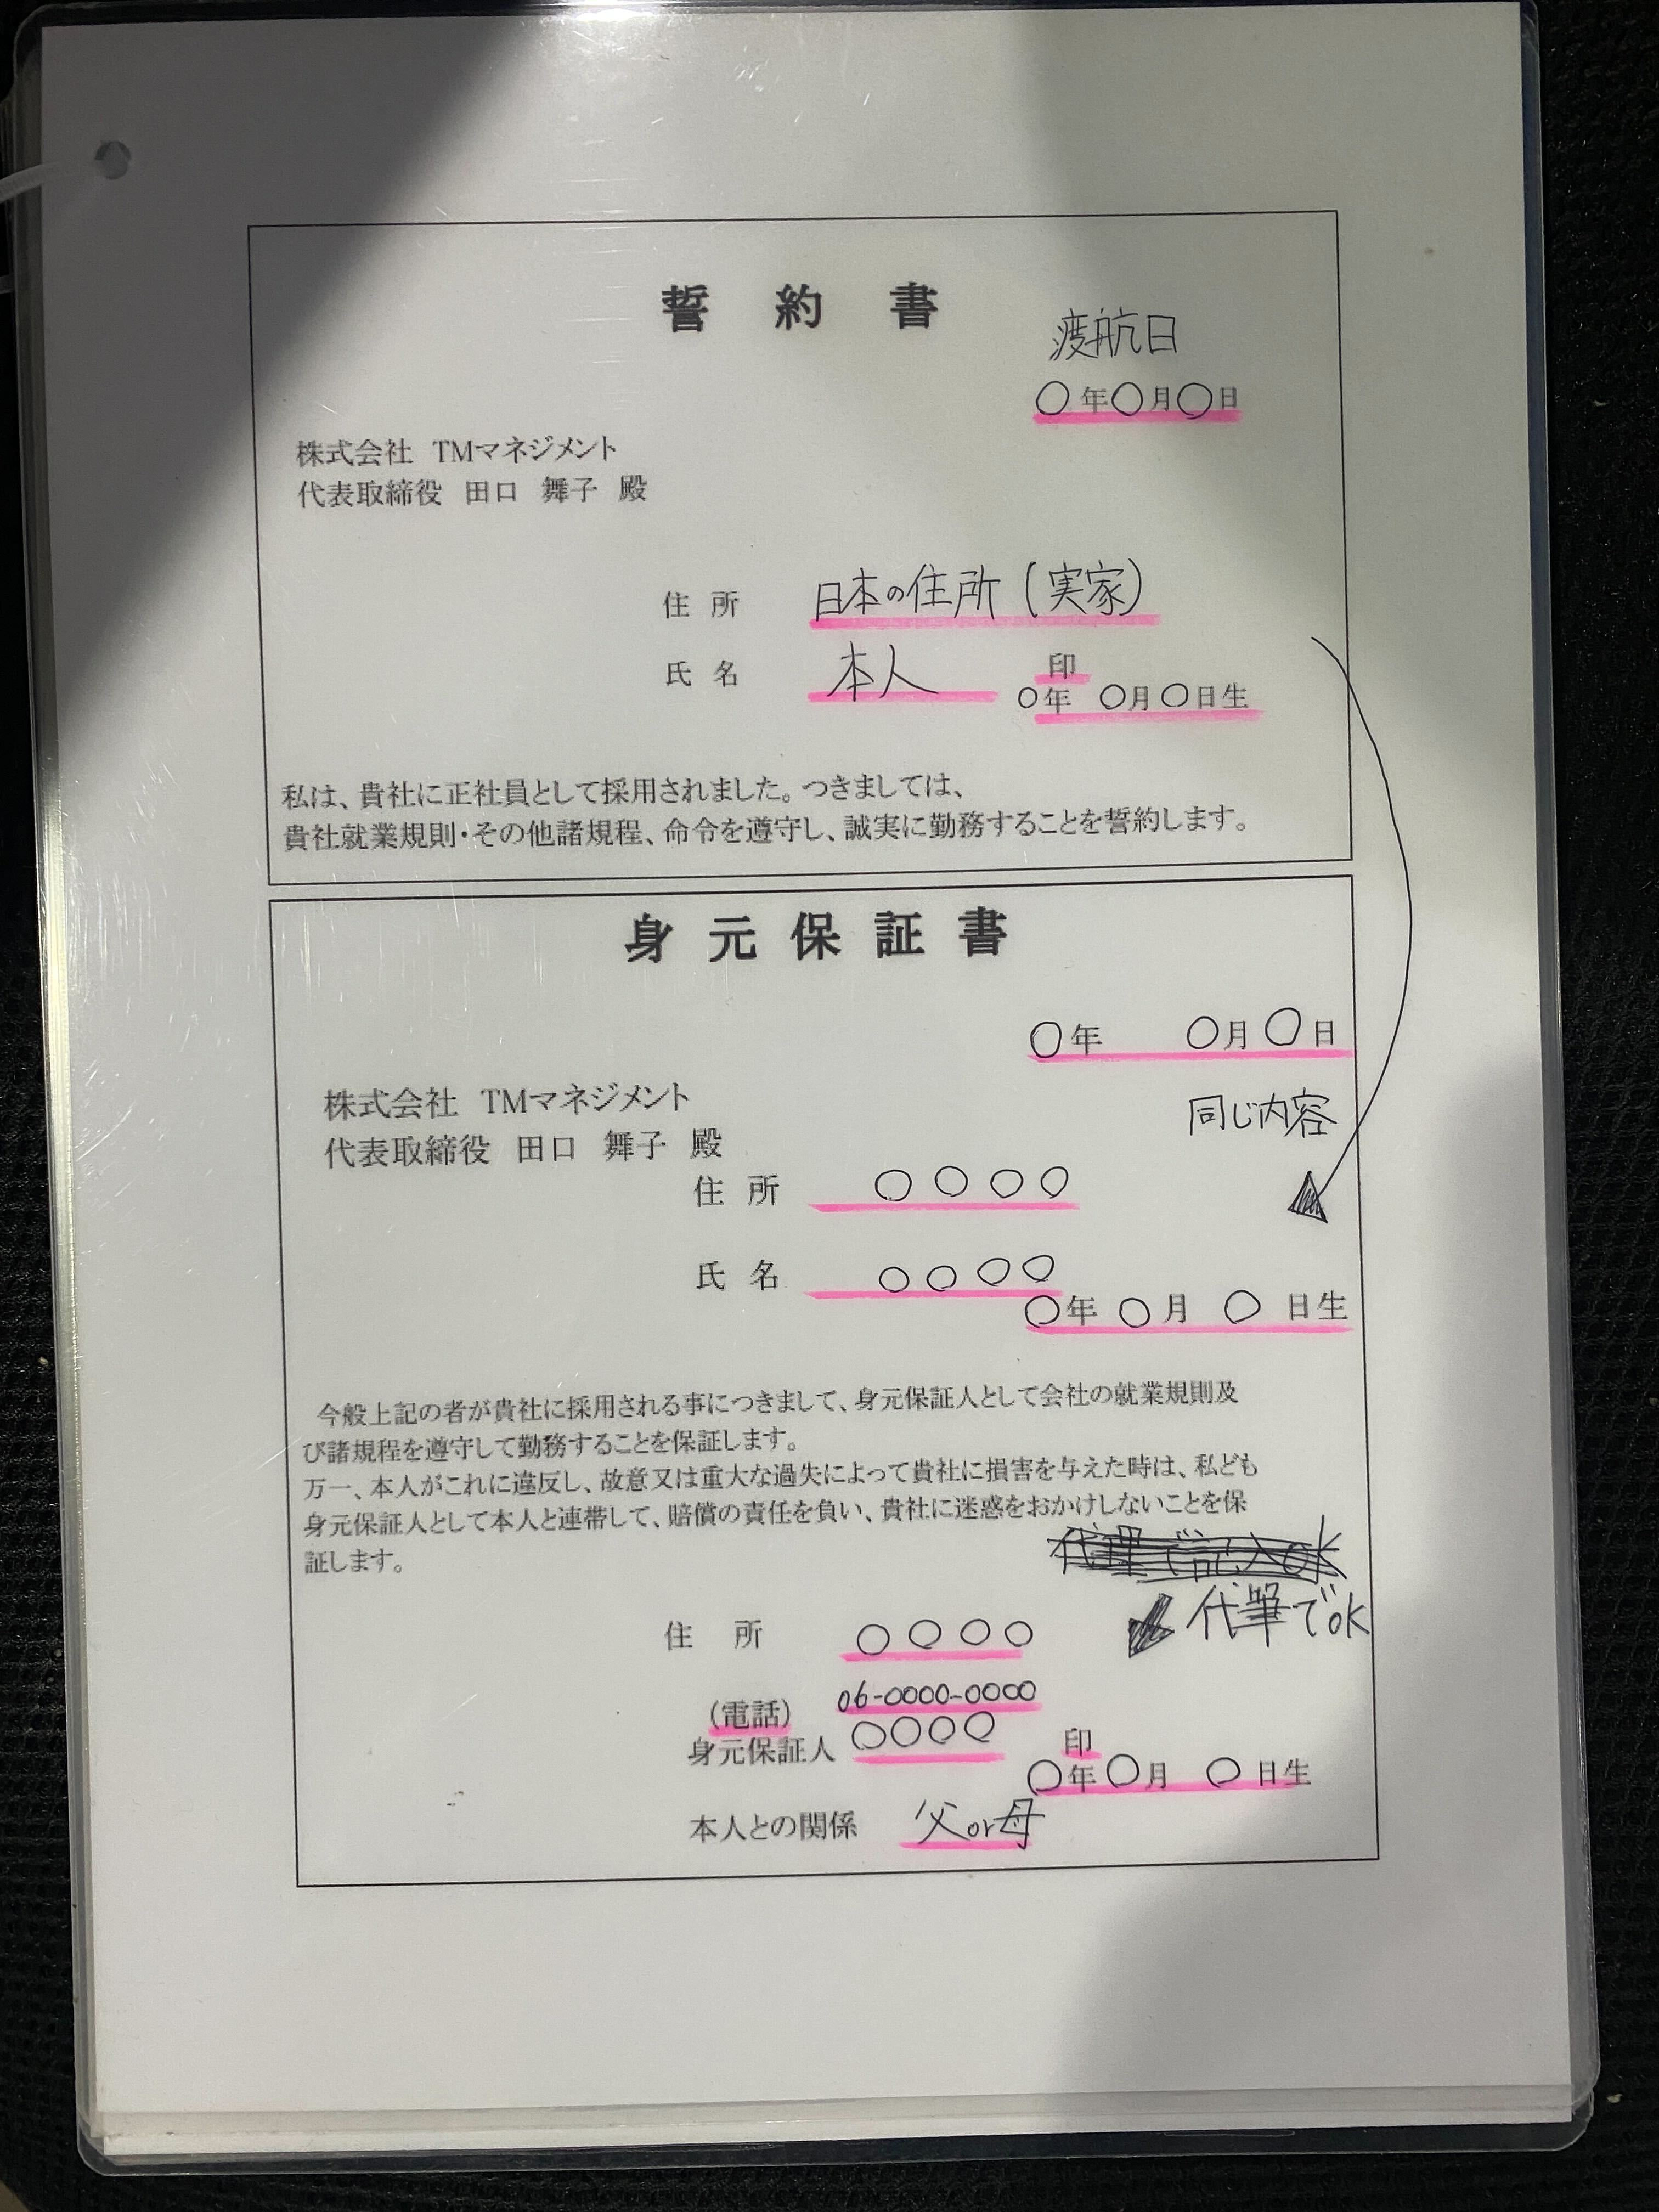 誓約書
渡航日
○年○月○日
株式会社 TMマネジメント
代表取締役 田口 舞子 殿
住所 日本の住所(実家)
氏名 本人 印
○年 ○月○日生
私は、貴社に正社員として採用されました。つきましては、
貴社就業規則・その他諸規程、命令を遵守し、誠実に勤務することを誓約します。
身元保証書
○年 ○月○日
株式会社 TMマネジメント
同じ内容
代表取締役 田口 舞子 殿
住所 ○○○○
氏名 ○○○○
○年○月 ○日生
今般上記の者が貴社に採用される事につきまして、身元保証人として会社の就業規則及
び諸規程を遵守して勤務することを保証します。
万一、本人がこれに違反し、故意又は重大な過失によって貴社に損害を与えた時は、私ども
身元保証人として本人と連帯して、賠償の責任を負い、貴社に迷惑をおかけしないことを保
証します。
代理で記入OK
代筆でOK
住所 ○○○○
(電話) 06-0000-0000
身元保証人 ○○○○ 印
○年○月 ○日生
本人との関係 父or母